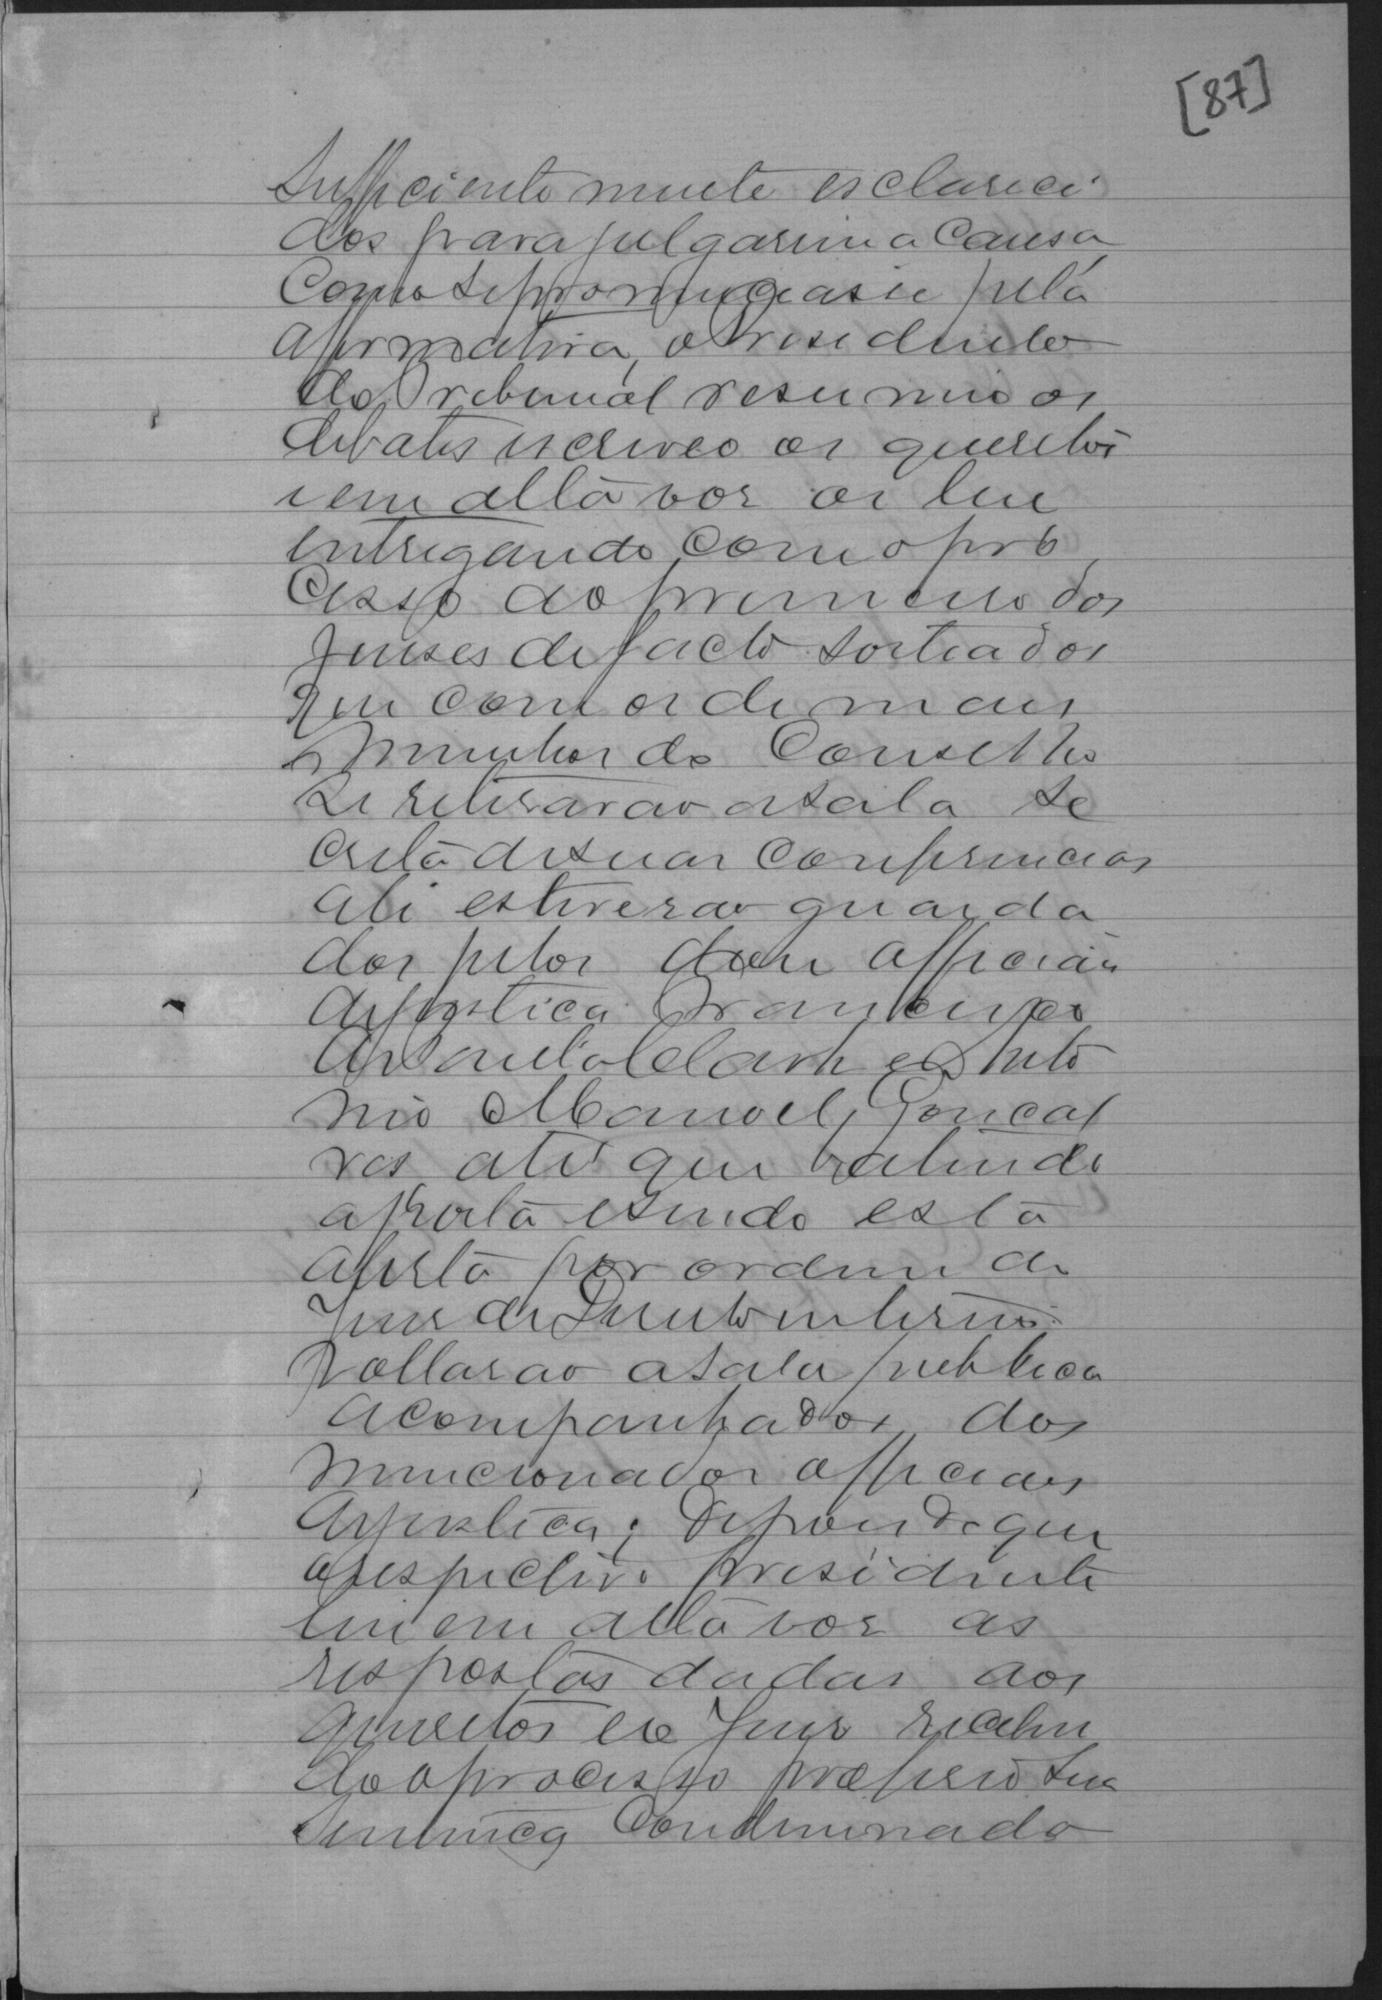 [87]
Sufficiente mente esclareci
dos para julgarem a Causa
Como se pronunciasse pela
affirmativa, o Presidente
do Tribunal resumio os
debates escreveo os quesitos
e em alta voz os leu
entregando com o pro
cesso ao primeiro dos
Juises de facto sorteados
que com os de mais
membros do Conselho
se retirarao a sala se
creta de suas conferencias
ali estiverao guarda
dos pelos dous officiaes
de justica Francisco
de Santa Clara e Anto
nio Manoel Goncal
ves até que batendo
a porta e sendo esta
aberta por ordem do
Juiz de Direito interino
voltarao a sala publica
acompanhados dos
mencionados officiaes
de justica; depois do que
o respectivo presidente
leu em alta voz as
respostas dadas aos
quesitos e o Juiz receben
do o processo proferio sua
Sentença Condemnando